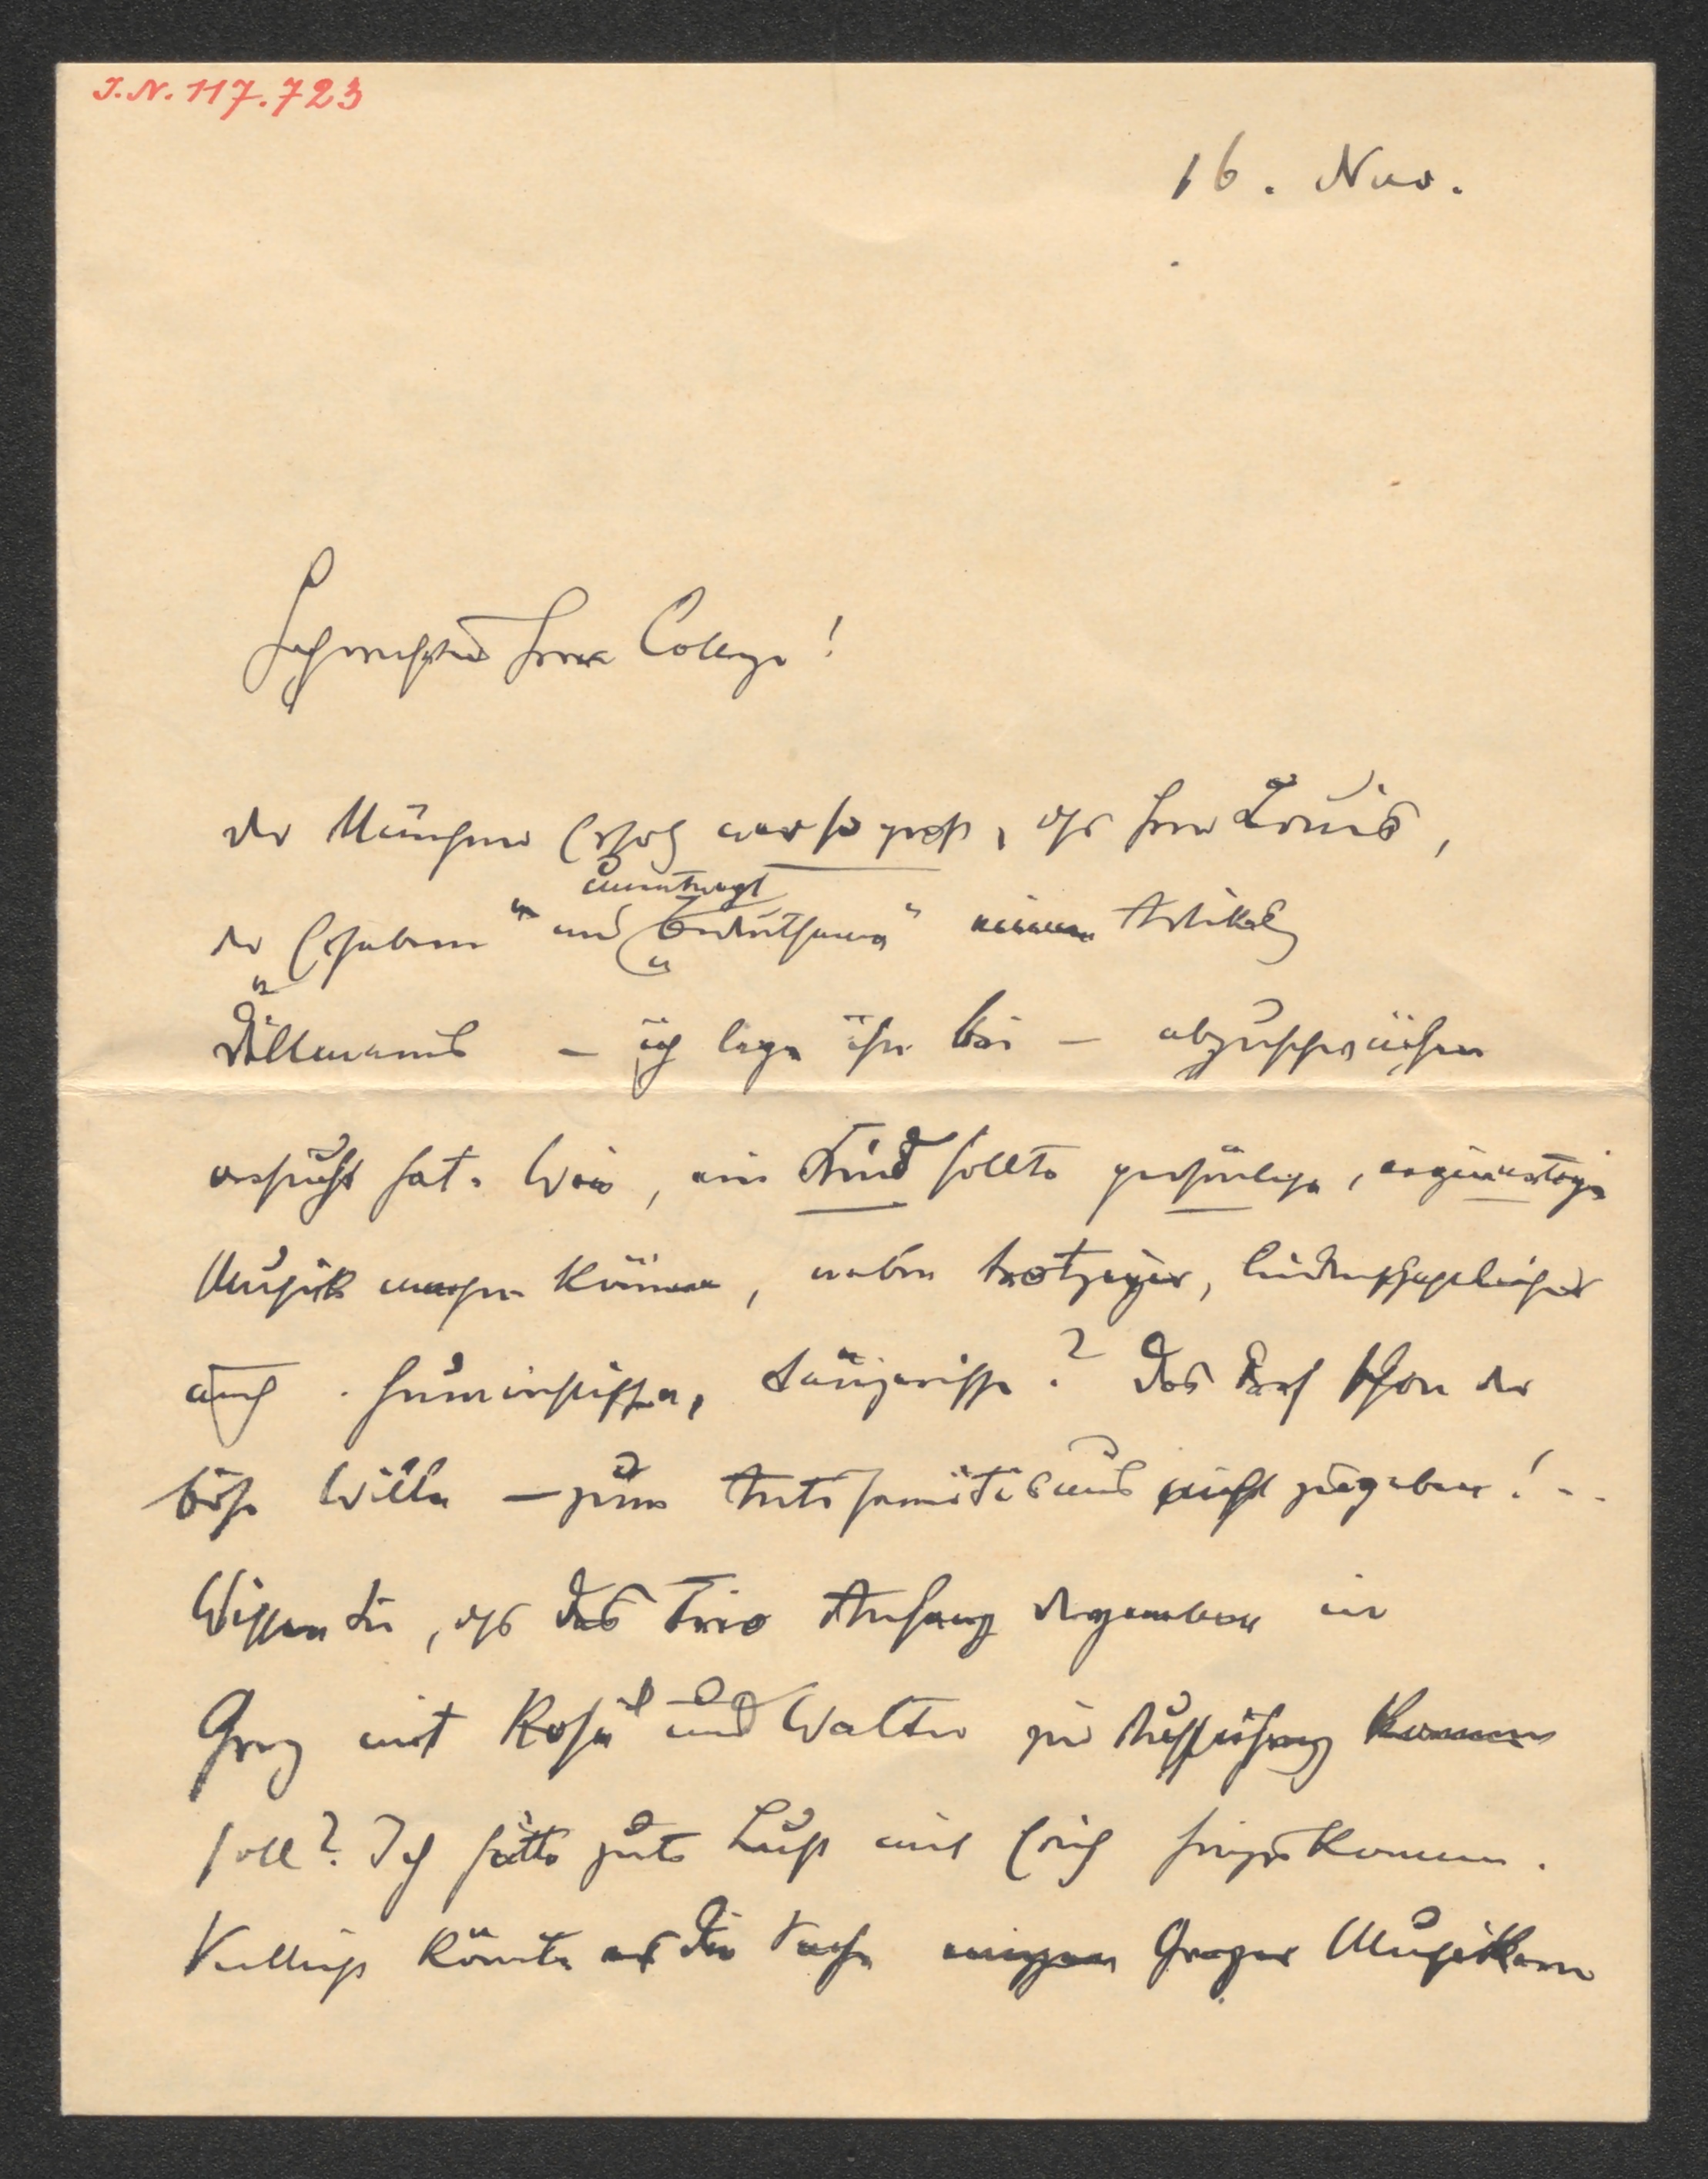 I.N. 117.723
16. Nov.
Hochverehrter Herr College!
der Münchner Erfolg war so groß, dß Herr Louis,
der Erhabene "und
Dillmanns – ich lege ihn bei – abzuschwächen
versucht hat. Wie, ein Kind sollte persönliche, eigenartige
Musik machen können, neben trotziger, leidenschaftlicher
auch humoristische, tänzerische? Das darf schon der
böse Wille – zum Antisemitismus nicht zugeben! –
Wissen Sie, dß das Trio Anfang Dezember in
Graz mit Rosé und Walter zur Aufführung kommen
soll? Ich hätte gute Lust mit Erich hinzukommen.
Vielleicht könnte die Grazer Musikern